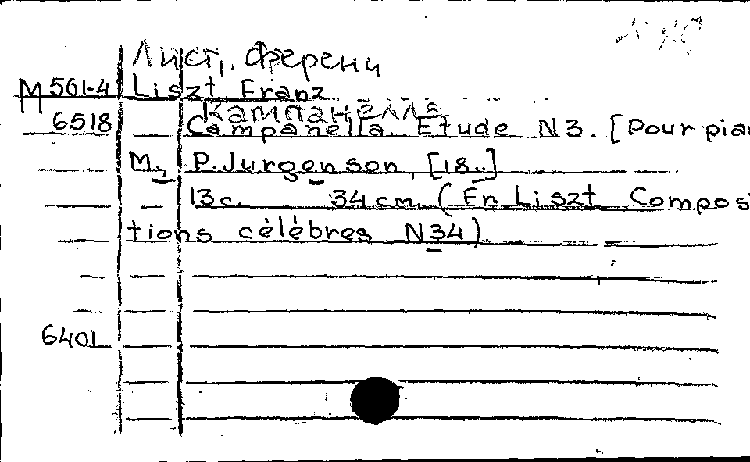 Лист, Ференц
М 561-4 Liszt Franz
Кампанелла
6518 Campanella Etude N3. [Pour pia
M., P. Jurgenson, [18..]
13c. 34cm. (En Liszt Compos
tions célèbres N34)
6401